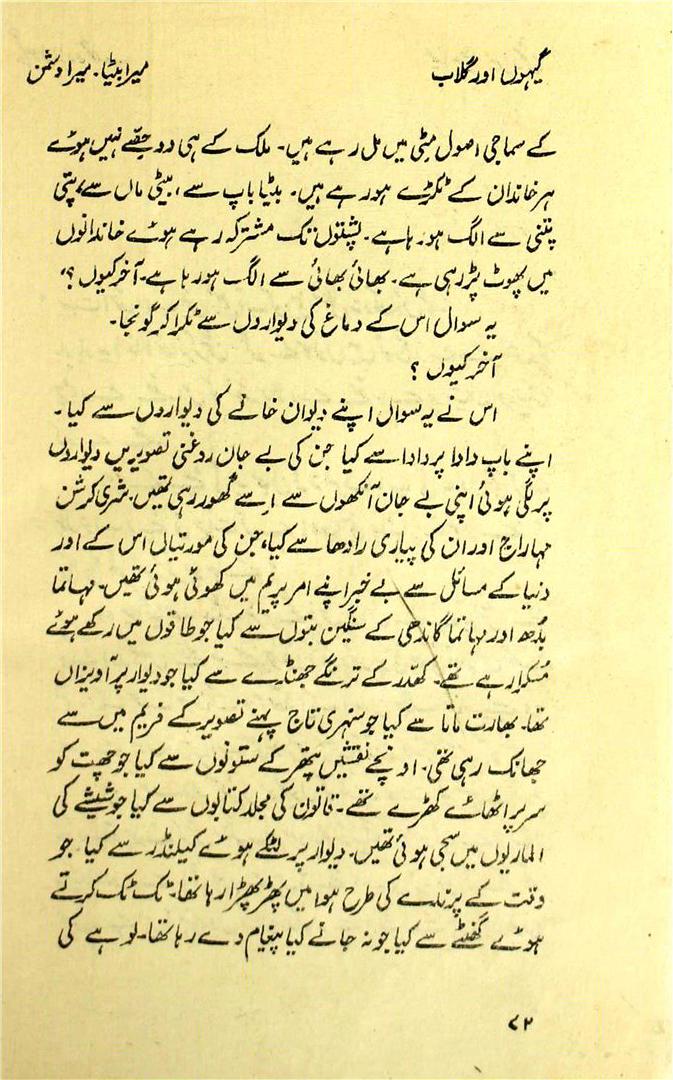 گیہوں اور گلاب
میرا بیٹا۔ میرا دشمن
کے سماجی اصول مٹی میں مل رہے ہیں۔ ملک کے ہی دو حصّے نہیں ہوئے
ہر خاندان کے ٹکڑے ہو رہے ہیں۔ بیٹا باپ سے، بیٹی ماں سے، پتی
پتنی سے الگ ہو رہا ہے۔ پشتوں تک مشترکہ رہے ہوئے خاندانوں
میں پھوٹ پڑ رہی ہے۔ بھائی بھائی سے الگ ہو رہا ہے۔ آخر کیوں ؟"
یہ سوال اس کے دماغ کی دیواروں سے ٹکرا کر گونجا۔
آخر کیوں ؟
اس نے یہ سوال اپنے دیوان خانے کی دیواروں سے کیا ۔
اپنے باپ دادا پردادا سے کیا جن کی بے جان روغنی تصویریں دیواروں
پر لگی ہوئی اپنی بے جان آنکھوں سے اسے گھور رہی تھیں۔ شری کرشن
مہاراج اور ان کی پیاری رادھا سے کیا، جن کی مورتیاں اس کے اور
دنیا کے مسائل سے بے خبر اپنے امر پریم میں کھوئی ہوئی تھیں۔ مہاتما
بُدھ اور مہاتما گاندھی کے سنگین بتوں سے کیا جو طاقوں میں رکھے ہوئے
مُسکرا رہے تھے۔ کھدّر کے ترنگے جھنڈے سے کیا جو دیوار پر آویزاں
تھا۔ بھارت ماتا سے کیا جو سنہری تاج پہنے تصویر کے فریم میں سے
جھانک رہی تھی۔ اونچے نقشیں پتھر کے ستونوں سے کیا جو چھت کو
سر پر اٹھائے کھڑے تھے۔ قانون کی مجلد کتابوں سے کیا جو شیشے کی
الماریوں میں سجی ہوئی تھیں۔ دیوار پر لٹکے ہوئے کیلنڈر سے کیا جو
وقت کے پرندے کی طرح ہوا میں پھڑپھڑا رہا تھا۔ ٹک ٹک کرتے
ہوئے گھنٹے سے کیا جو نہ جانے کیا پیغام دے رہا تھا۔ لوہے کی
۷۲